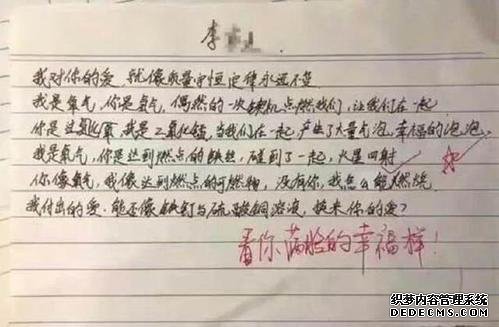 李
我对你的爱,就像质量守恒定律永远不变
我是氧气,你是氢气,偶然的一次契机点燃我们,让我们在一起
你是过氧化氢,我是二氧化锰,当我们在一起,产生了大量气泡,幸福的泡泡。
我是氧气,你是达到燃点的铁丝,碰到了一起,火星四射
你像氧气,我像达到燃点的可燃物,没有你,我怎么能燃烧
我付出的爱,能否像铁钉与硫酸铜溶液,换来你的爱?
看你满脸的幸福样!
织梦内容管理系统
DEDECMS.COM